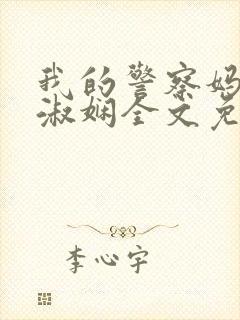 我的警察妈
淑娴全文免
李心宇